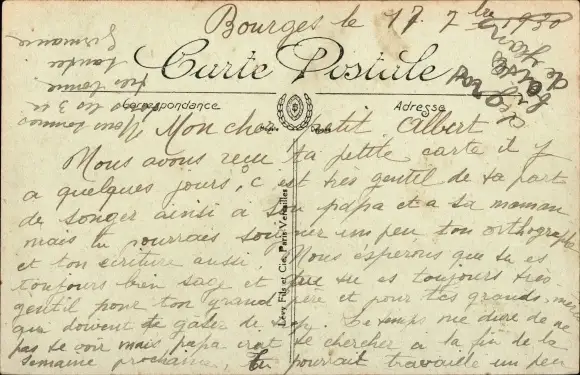 Bourges le 17. 7bre 1930
Carte Postale
Correspondance
Adresse
Mon cher petit Albert
Nous avons reçu ta petite carte il y
a quelques jours, c'est très gentil de ta part
de songer ainsi à ton papa et a ta maman
mais tu pourrais soigner un peu ton orthographe
et ton écriture aussi. Nous espérons que tu es
toujours bien sage et que tu es toujours très
gentil pour ton grand père et pour tes grands mères
qui doivent te gater de trop. Le temps me dure de ne
pas te voir mais papa crat te chercher a la fin de la
semaine prochaine, tu pourrait travaille un peu
Nous sommes
tous les 3 en
très bonne
santée
Germaine
Lévy Fils et Cie, Paris-Versailles